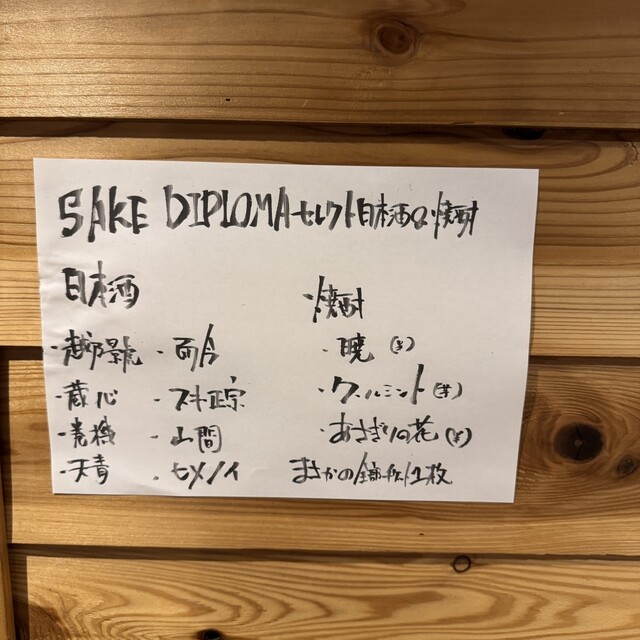 SAKE DIPLOMAセレクト日本酒&焼酎
日本酒
・越乃景虎
・蔵心
・天青
・而今
・スキ正宗
・山間
・七メノイ
焼酎
・暁(米)
・クールミント(芋)
・あさぎりの花(米)
まさかの全部チケット1枚